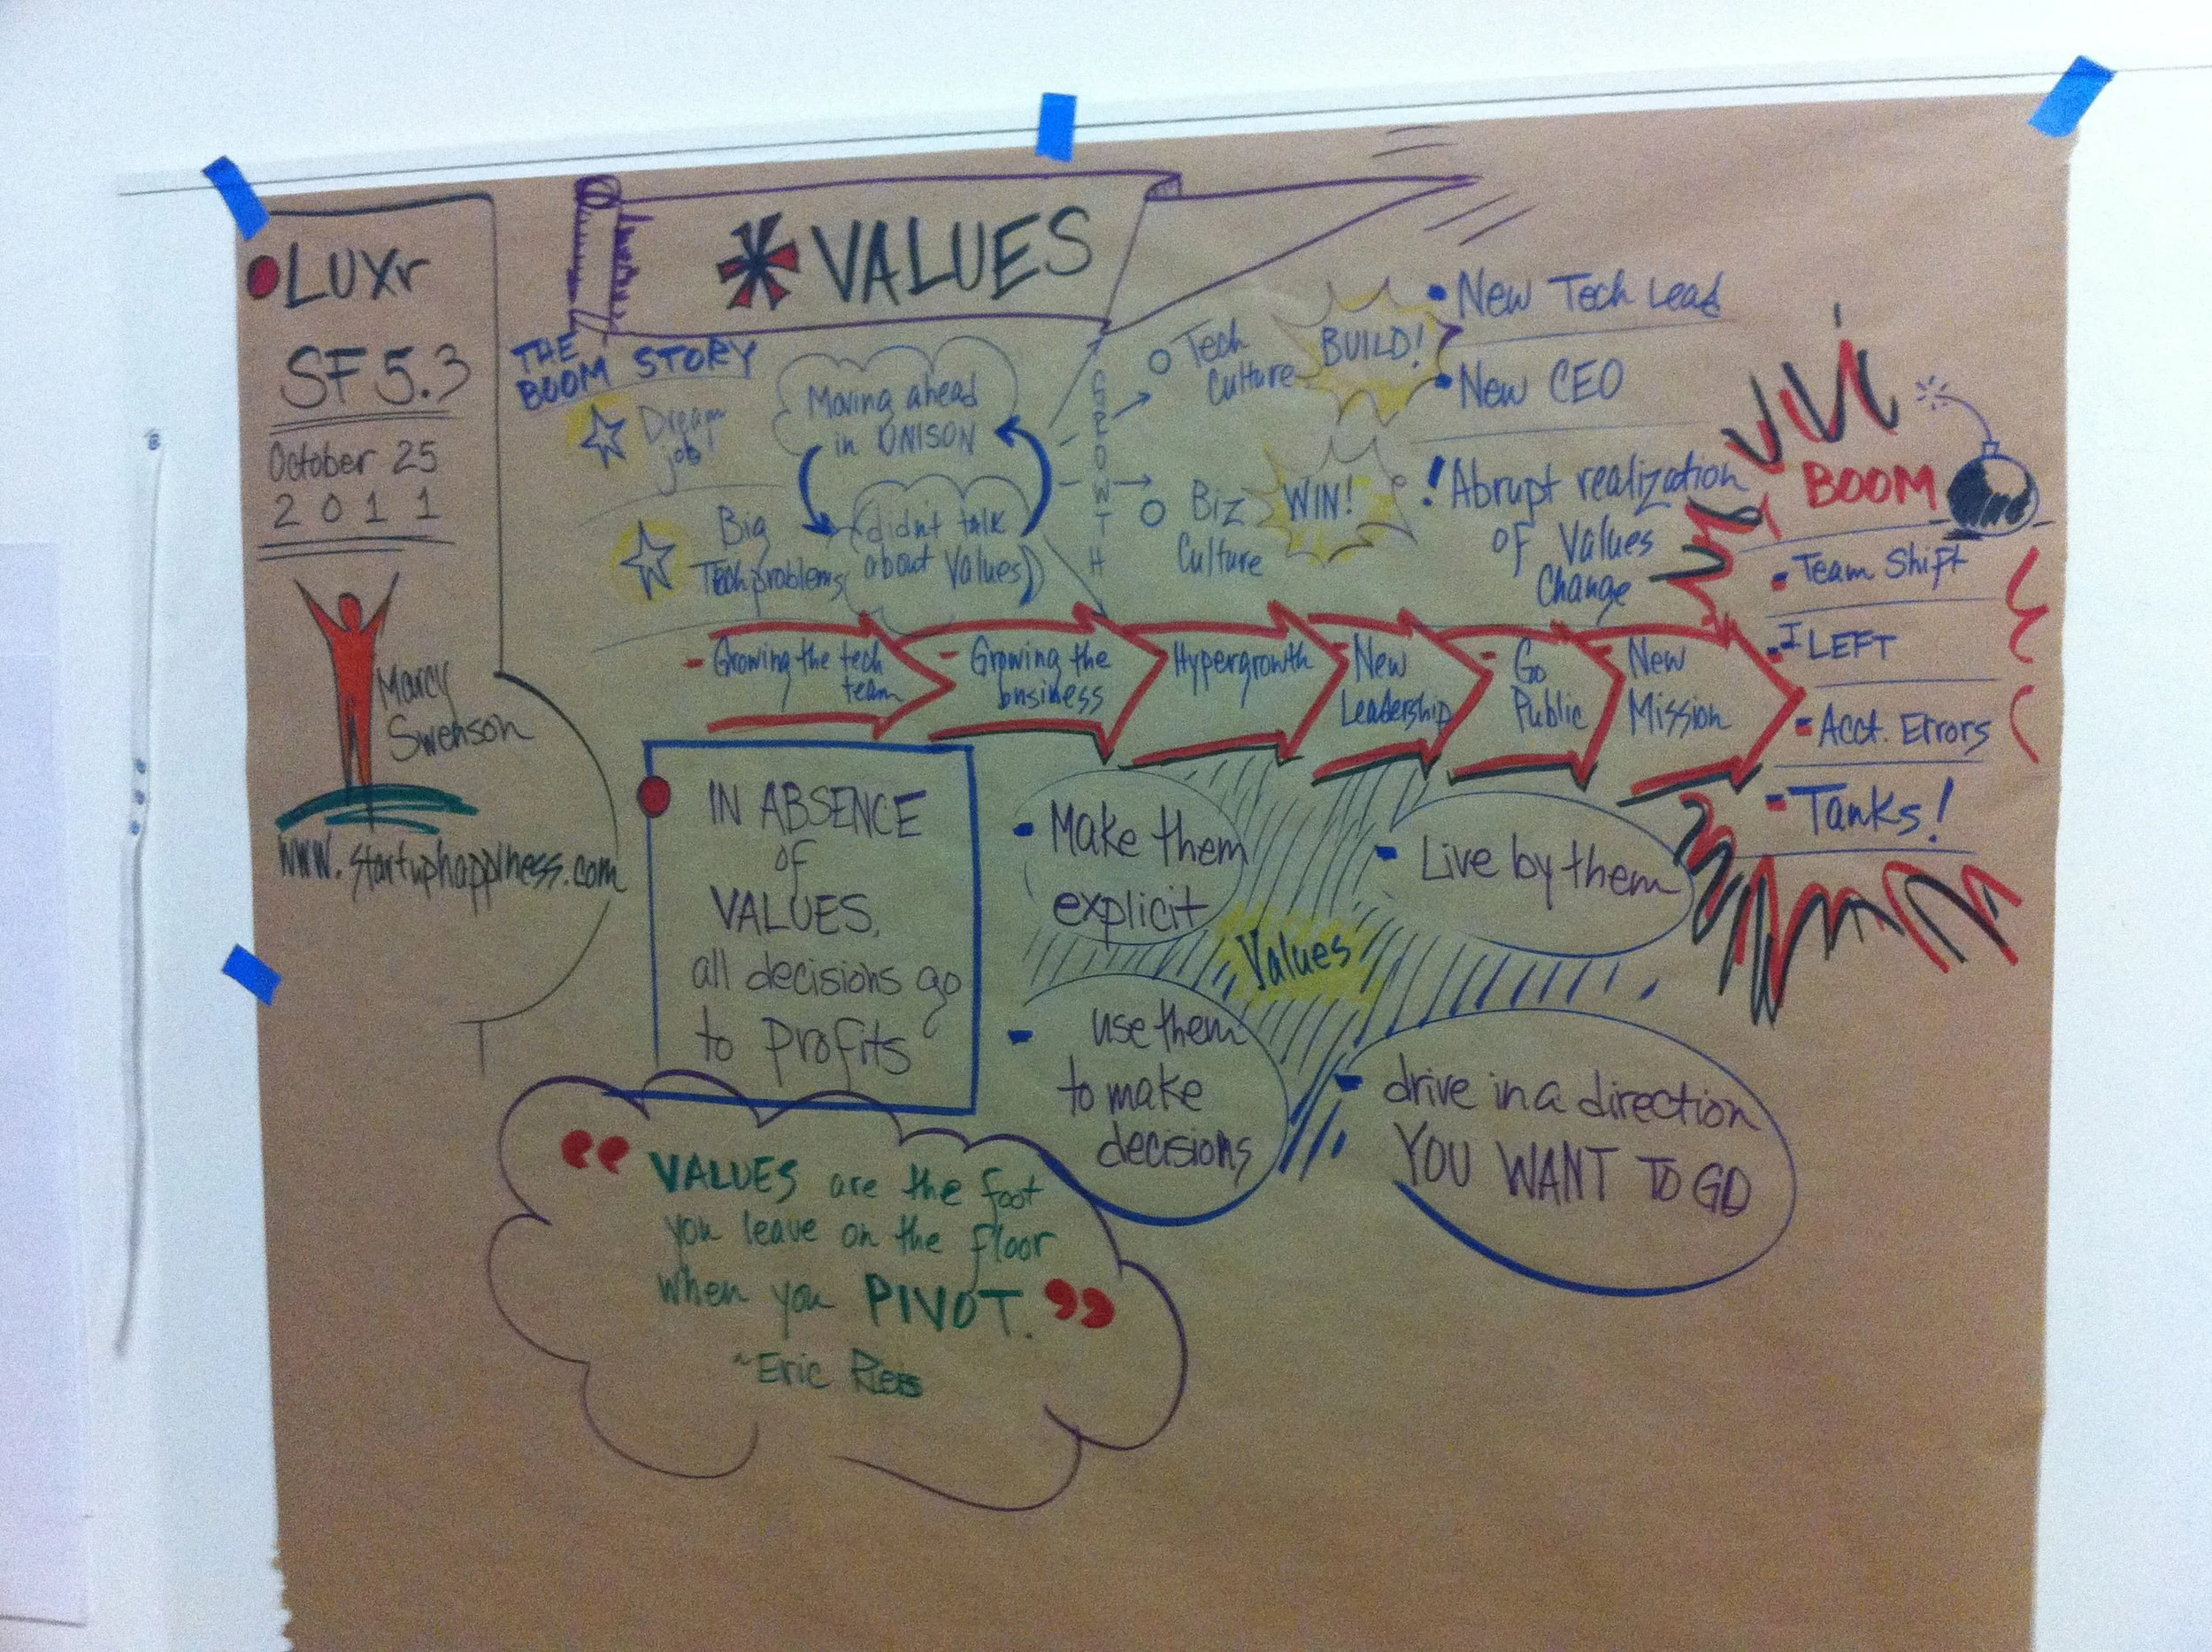 LUXr
SF 5.3
October 25
2011
Marcy
Swenson
www.startuphappiness.com
* VALUES
THE
BOOM STORY
Dream
job
Big
Tech problems
Moving ahead
in UNISON
(didn't talk
about Values)
GROWTH
Tech
Culture
BUILD!
Biz
Culture
WIN!
• New Tech Lead
• New CEO
! Abrupt realization
of Values
Change
BOOM
- Team Shift
- I LEFT
- Acct. Errors
- Tanks!
- Growing the tech
team
- Growing the
business
Hypergrowth
- New
Leadership
- Go
Public
- New
Mission
IN ABSENCE
of
VALUES,
all decisions go
to profits
- Make them
explicit
- Live by them
Values
- use them
to make
decisions
- drive in a direction
YOU WANT TO GO
“VALUES are the foot
you leave on the floor
when you PIVOT.”
~Eric Ries